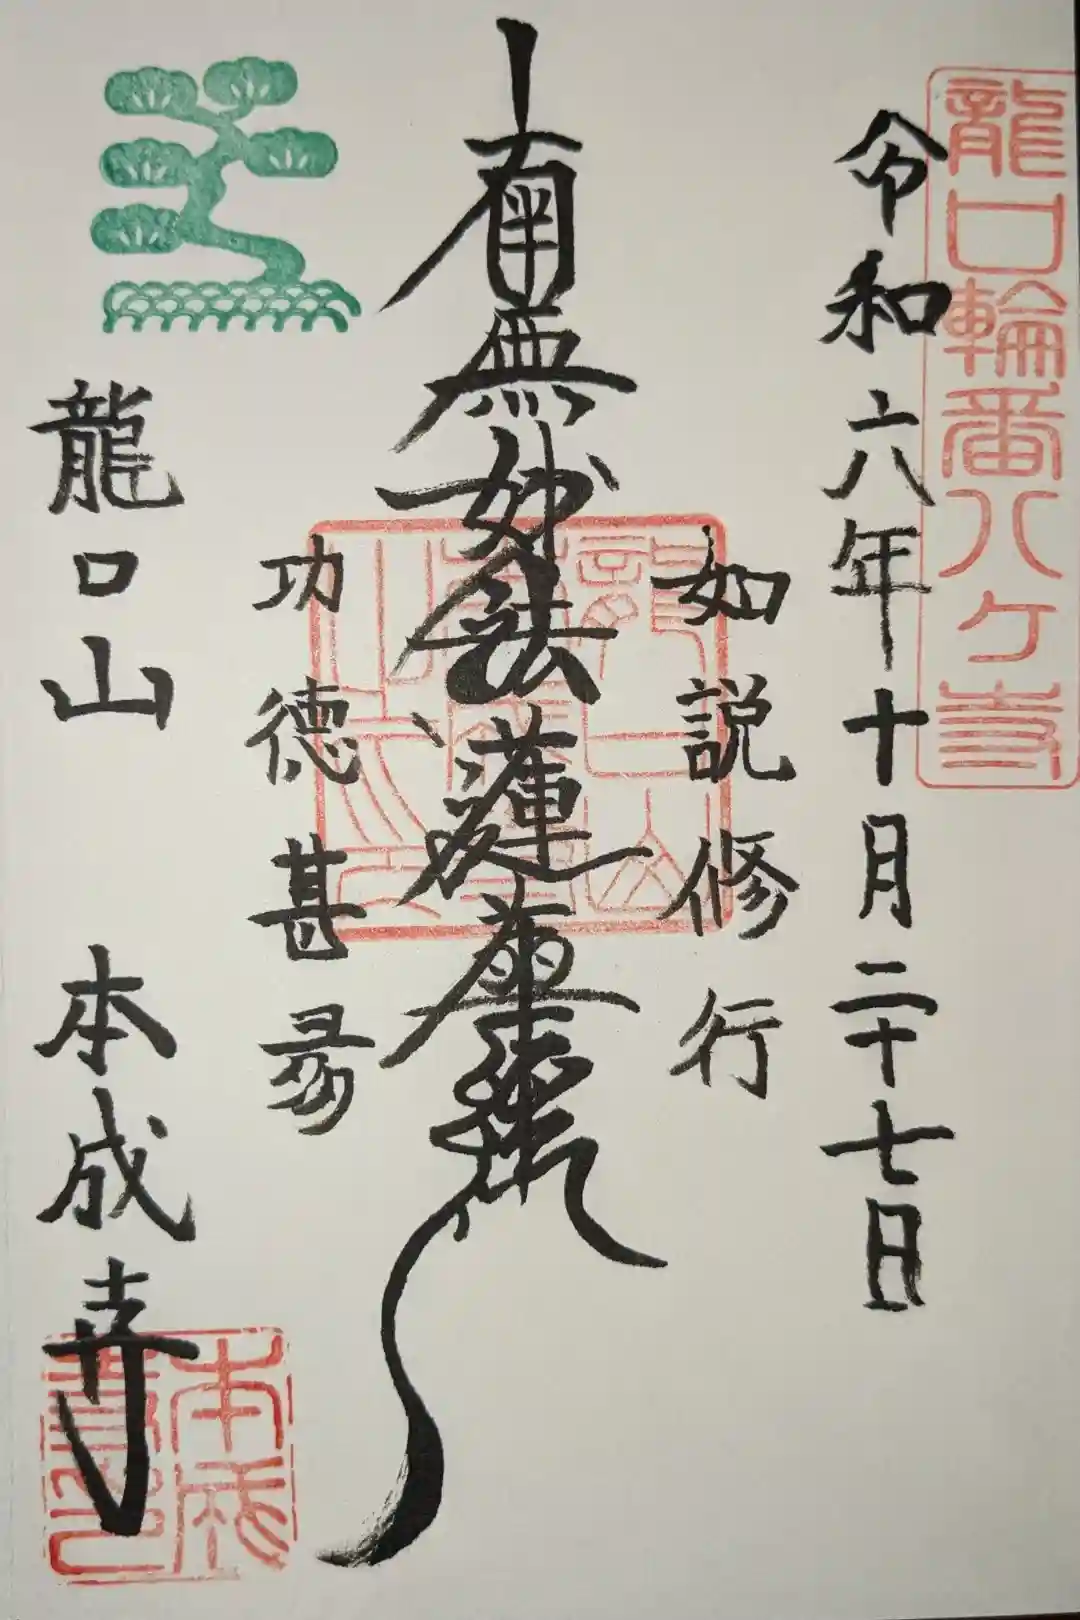 龍口輪番八ヶ寺
令和六年十月二十七日
如説修行
南無妙法蓮華経
功徳甚多
龍口山 本成寺
本成
寺